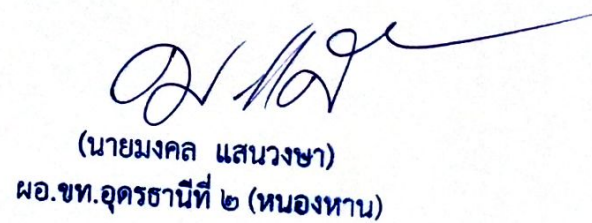 (นายมงคล แสนวงษา)
ผอ.ขท.อุดรธานีที่ ๒ (หนองหาน)